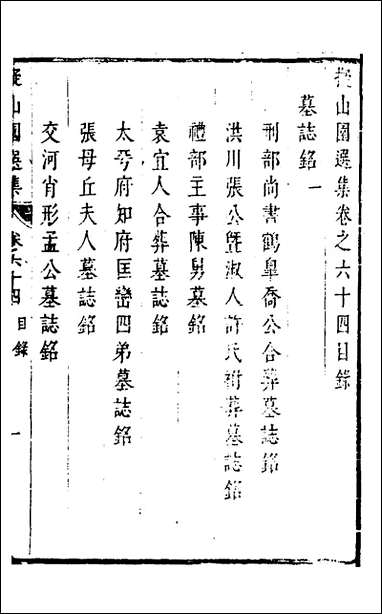 擬山園選集卷之六十四目錄
墓誌銘一
刑部尚書鶴皐喬公合葬墓誌銘
洪川張公曁淑人許氏祔葬墓誌銘
禮部主事陳舅墓銘
袁宜人合葬墓誌銘
太平府知府匡巒四弟墓誌銘
張母丘夫人墓誌銘
交河肖形孟公墓誌銘
擬山園選集 卷六十四 目錄 一